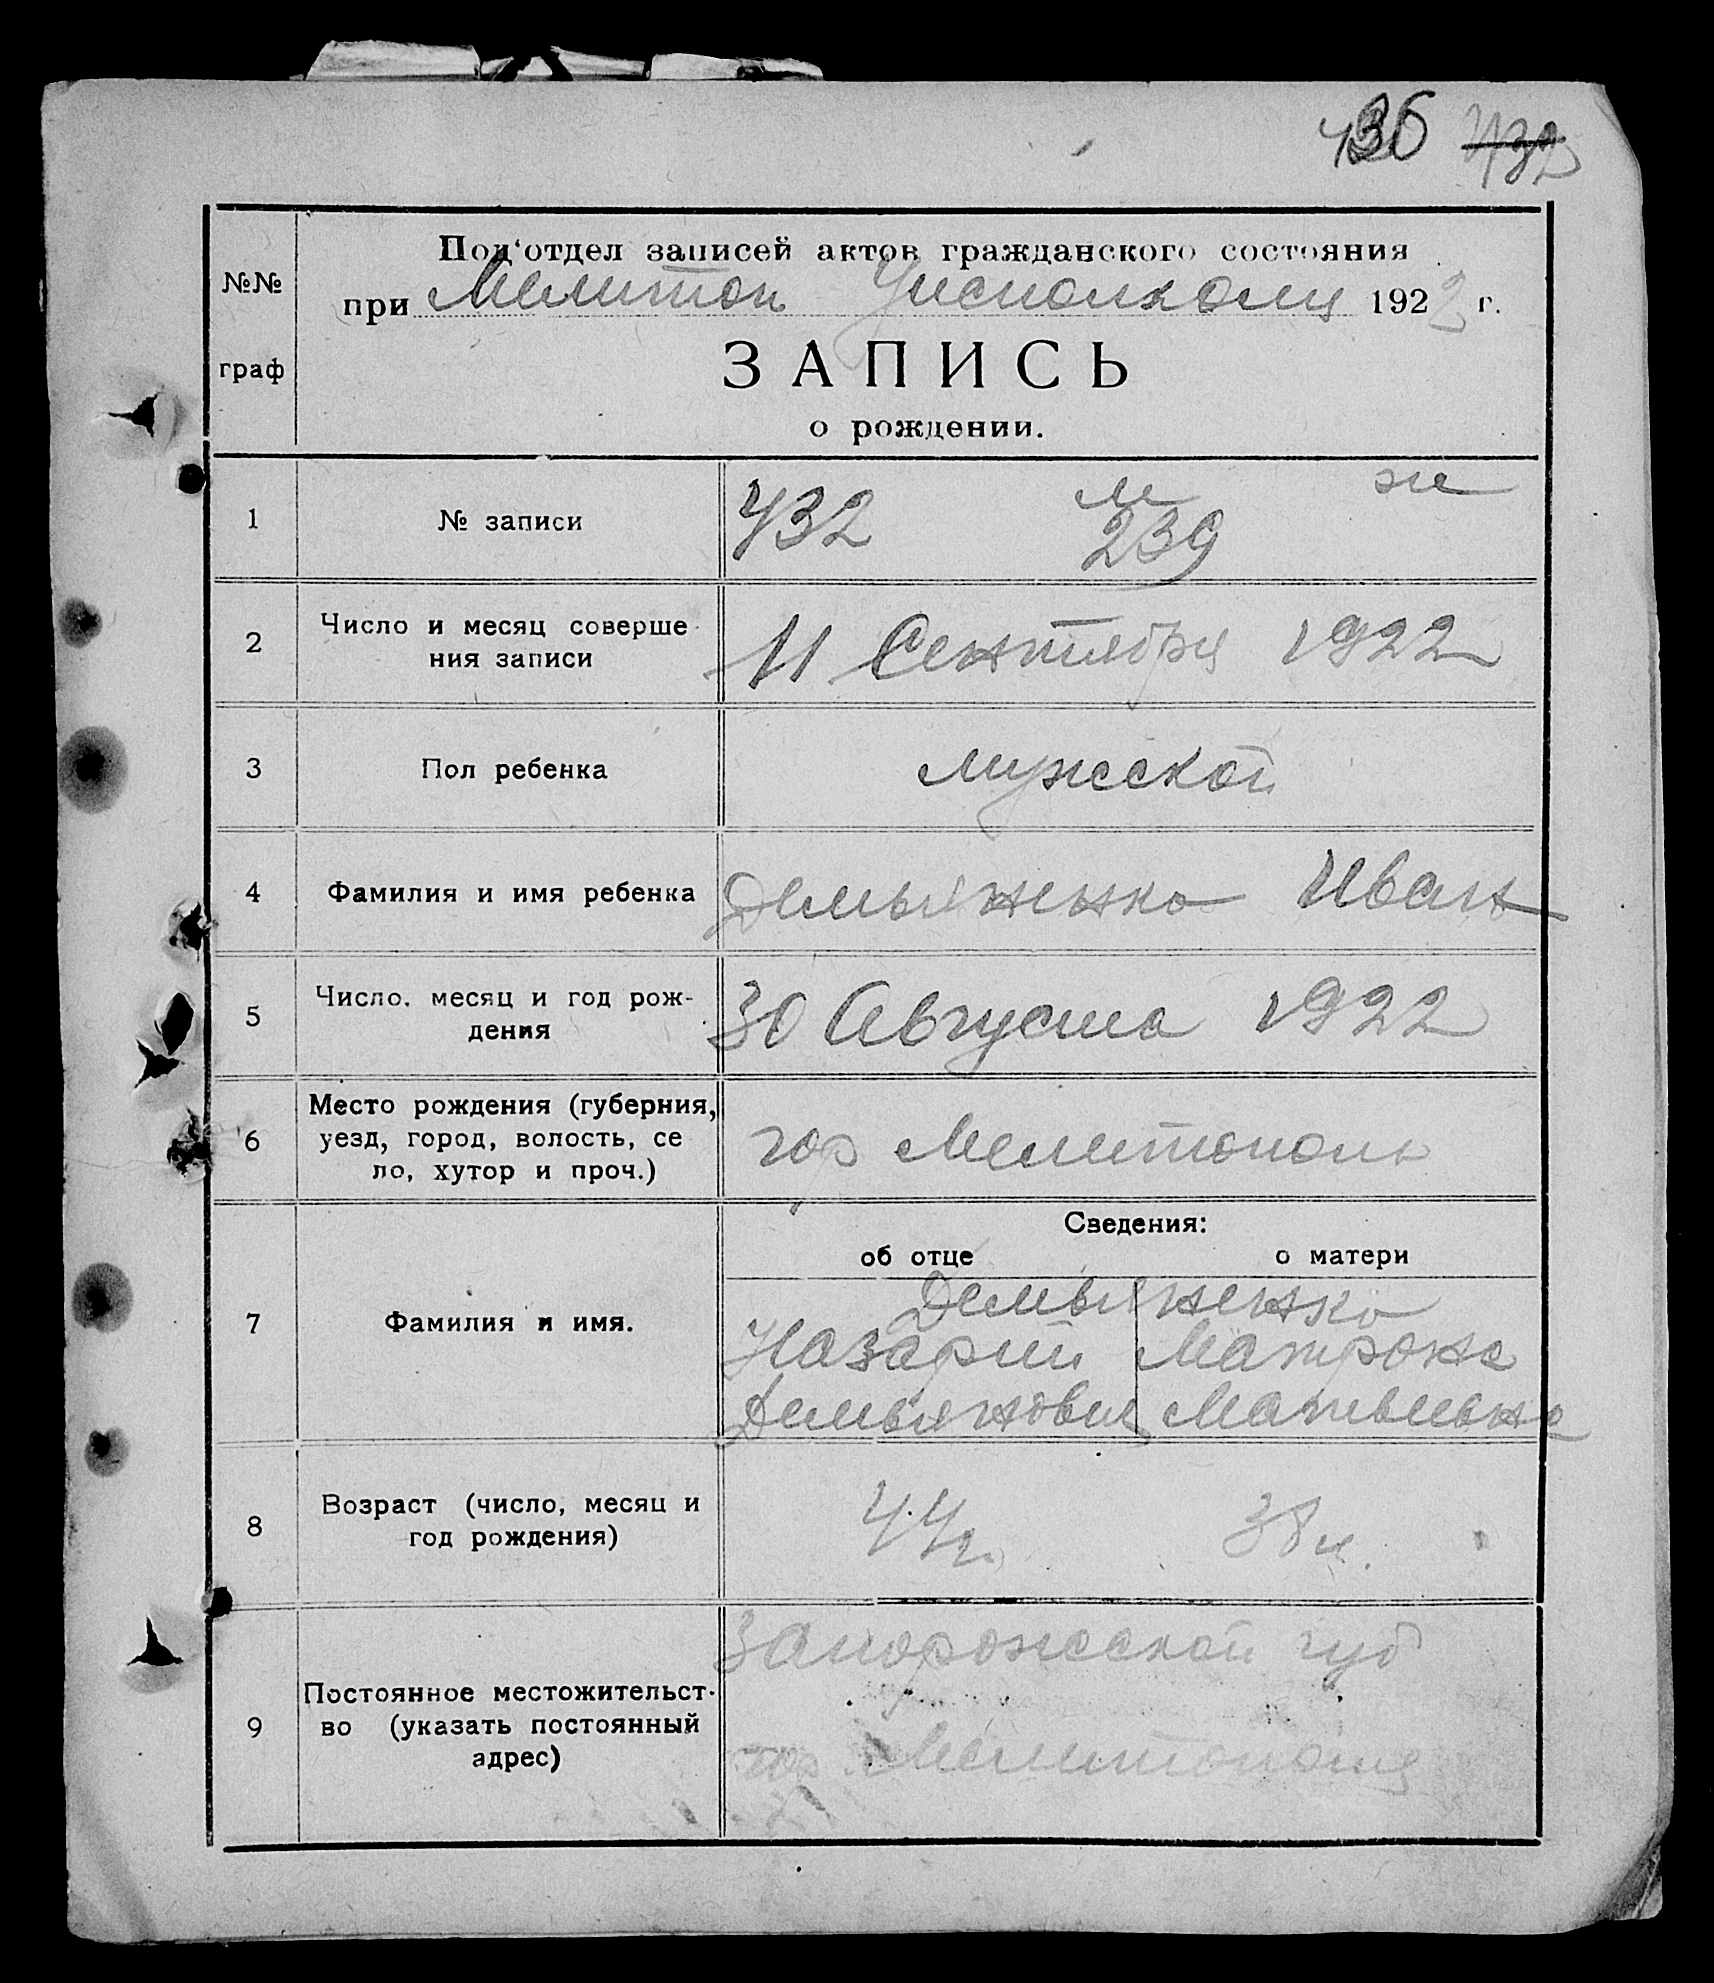 436 432
№№
граф
Под'отдел записей актов гражданского состояния
при Мелитоп Уисполкому 1922 г.
ЗАПИСЬ
о рождении.
1 № записи 432 м 239 ж
2 Число и месяц соверше
ния записи
11 Сентября 1922
3 Пол ребенка мужской
4 Фамилия и имя ребенка Демьяненко Иван
5 Число, месяц и год рож-
дения
30 Августа 1922
6 Место рождения (губерния,
уезд, город, волость, се
ло, хутор и проч.)
гор Мелитополь
Сведения:
об отце о матери
7 Фамилия и имя.
Демьяненко
Назарий Матрона
Демьянович Матвеевна
8 Возраст (число, месяц и
год рождения)
44г. 38л.
9 Постоянное местожительст-
во (указать постоянный
адрес)
Запорожской губ
гор Мелитополя